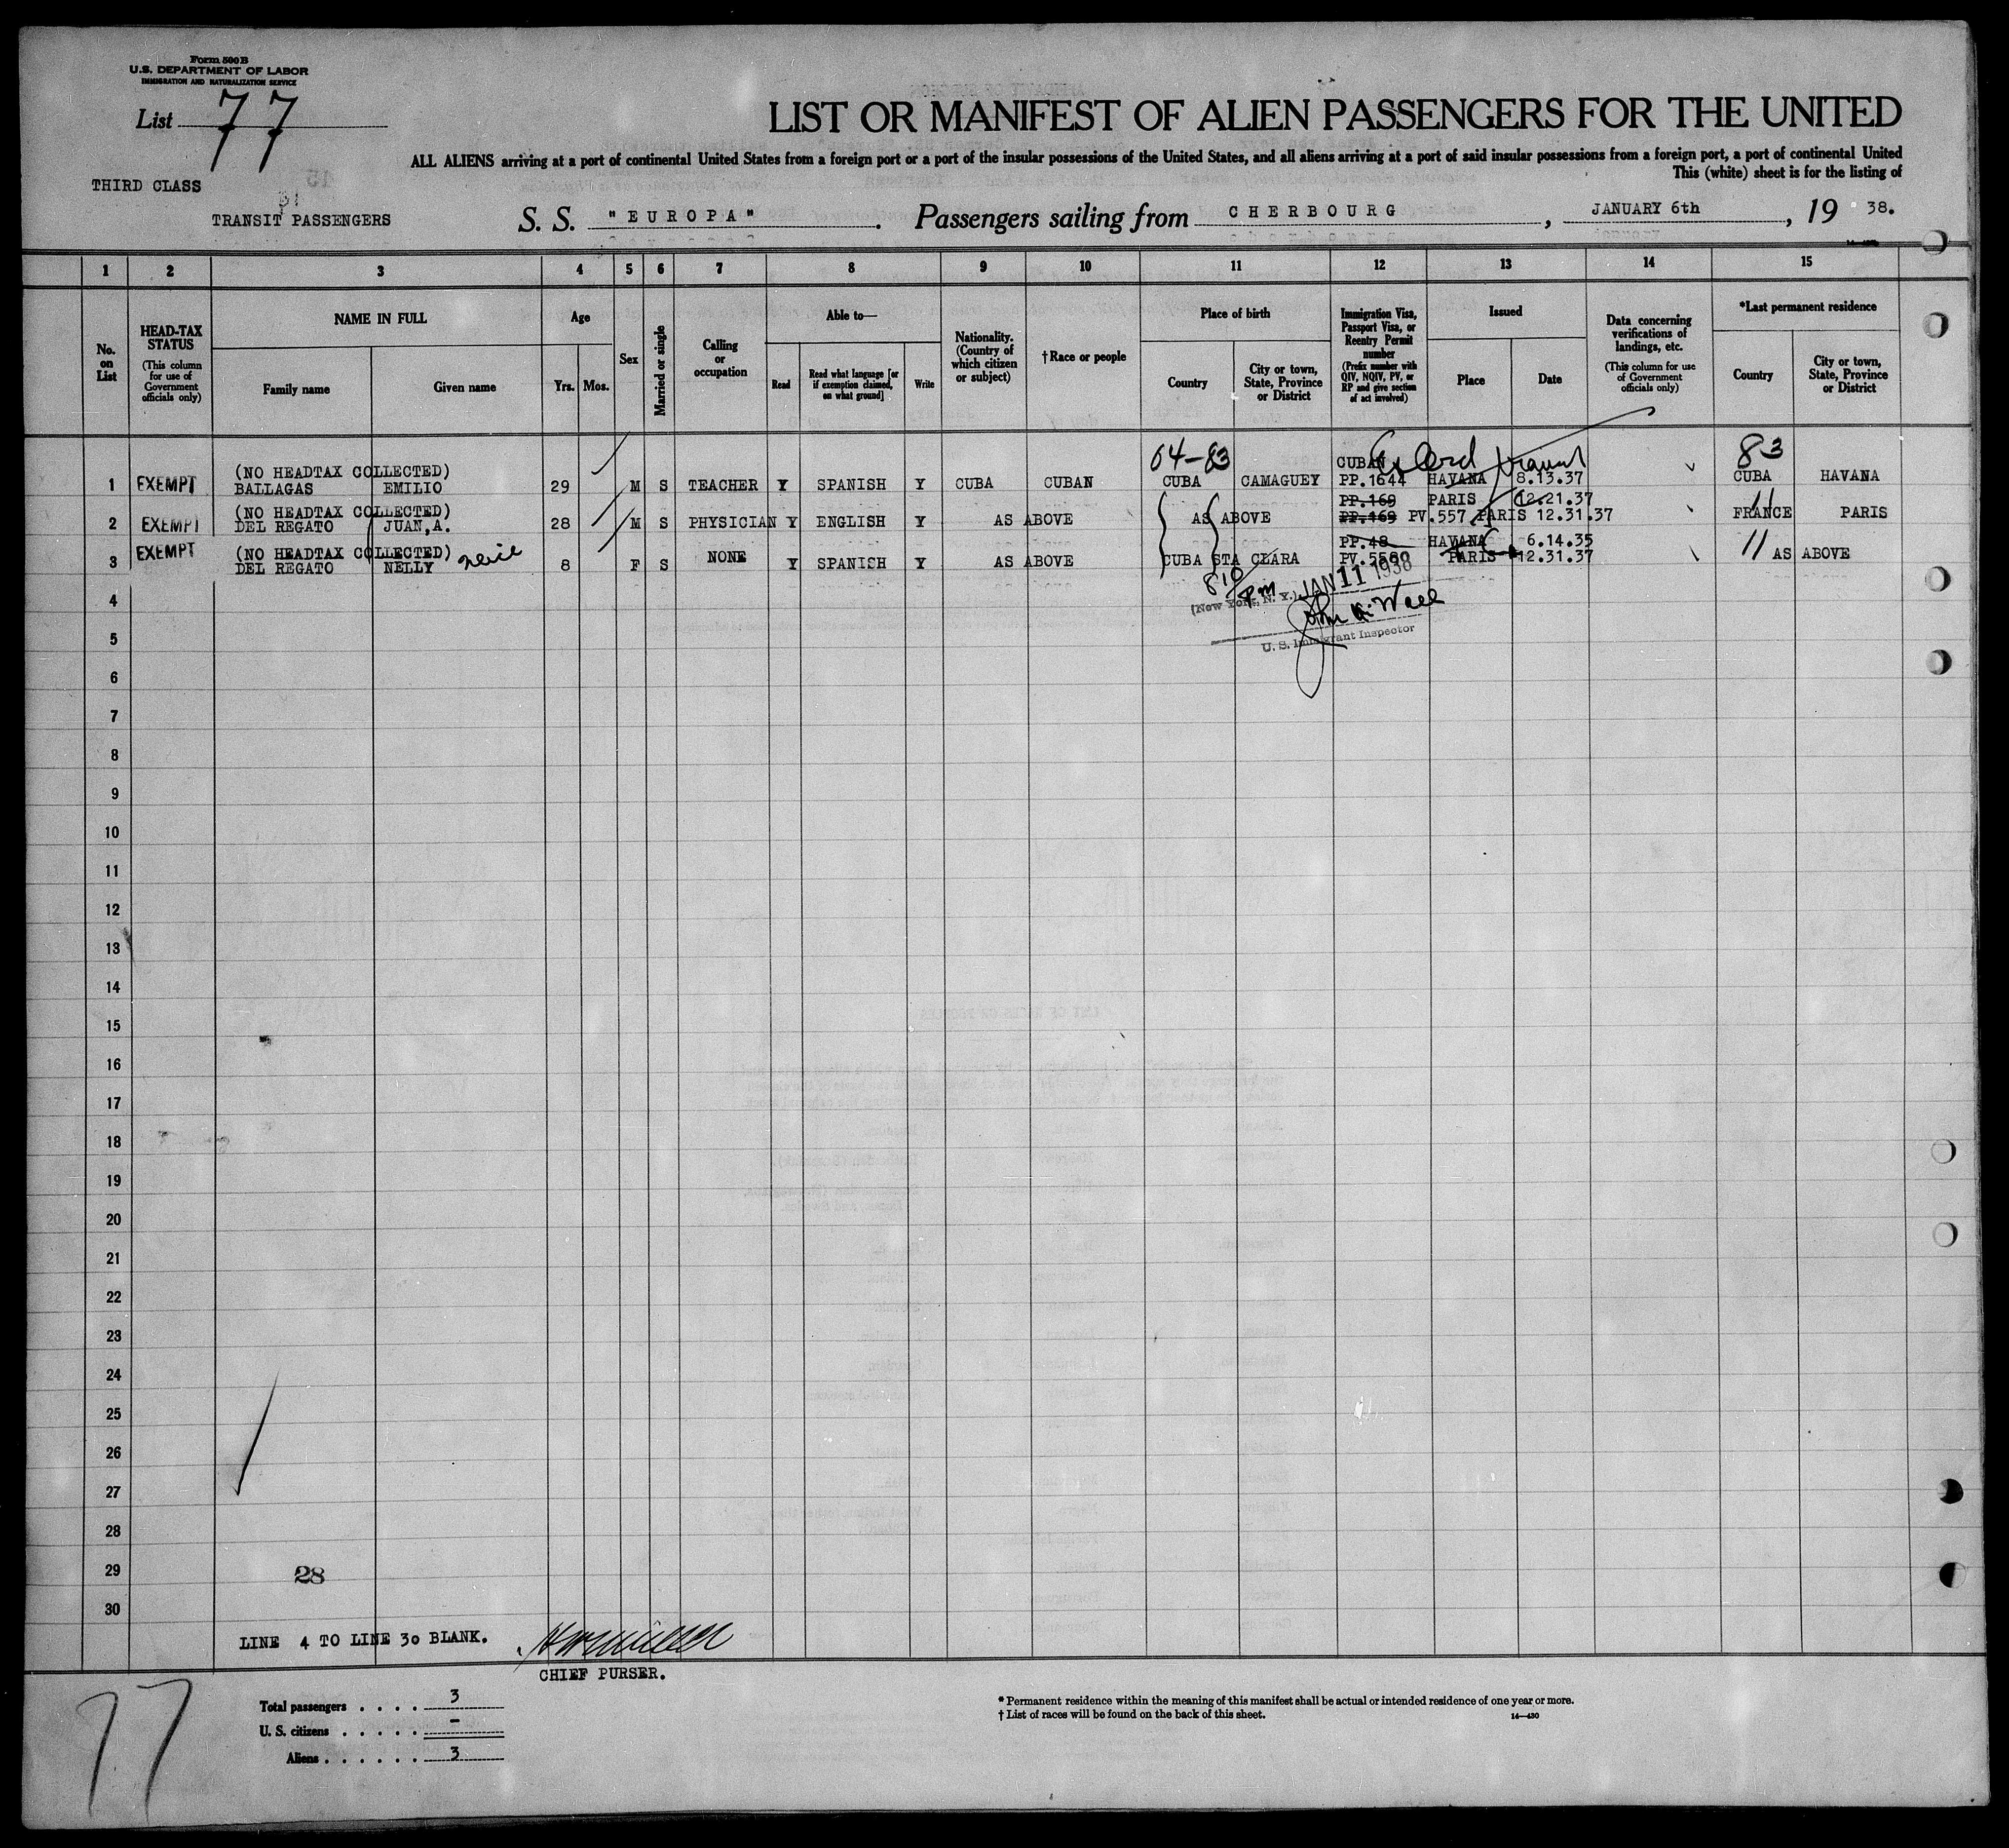 Form 500 B
U.S. DEPARTMENT OF LABOR
IMMIGRATION AND NATURALIZATION SERVICE
List 77
LIST OR MANIFEST OF ALIEN PASSENGERS FOR THE UNITED
ALL ALIENS arriving at a port of continental United States from a foreign port or a port of the insular possessions of the United States, and all aliens arriving at a port of said insular possessions from a foreign port, a port of continental United
This (white) sheet is for the listing of
THIRD CLASS
TRANSIT PASSENGERS
S. S. "EUROPA". Passengers sailing from CHERBOURG, JANUARY 6th, 19 38.
1 2 3 4 5 6 7 8 9 10 11 12 13 14 15
No. on List
HEAD-TAX STATUS (This column for use of Government officials only)
NAME IN FULL Family name Given name
Age Yrs. Mos.
Sex
Married or single
Calling or occupation
Able to— Read Read what language [or if exemption claimed, on what ground] Write
Nationality. (Country of which citizen or subject)
†Race or people
Place of birth Country City or town, State, Province or District
Immigration Visa, Passport Visa, or Reentry Permit number (Prefix number with QIV, NQIV, PV, or RP and give section of act involved)
Issued Place Date
Data concerning verifications of landings, etc. (This column for use of Government officials only)
*Last permanent residence Country City or town, State, Province or District
04-83 CUBAN 83
(NO HEADTAX COLLECTED)
1 EXEMPT BALLAGAS EMILIO 29 M S TEACHER Y SPANISH Y CUBA CUBAN CUBA CAMAGUEY PP.1644 HAVANA 8.13.37 CUBA HAVANA
(NO HEADTAX COLLECTED) PP.169 PARIS 12.21.37
2 EXEMPT DEL REGATO JUAN,A. 28 M S PHYSICIAN Y ENGLISH Y AS ABOVE AS ABOVE PP.169 PV.557 PARIS 12.31.37 FRANCE PARIS
EXEMPT (NO HEADTAX COLLECTED) neice PP.48 HAVANA 6.14.35
3 DEL REGATO NELLY 8 F S NONE Y SPANISH Y AS ABOVE CUBA STA CLARA PV.5580 PARIS 12.31.37 11 AS ABOVE
810 pm JAN 11 1938
4 (New York, N. Y.)
John W. Wall
5 U. S. Immigrant Inspector
6
7
8
9
10
11
12
13
14
15
16
17
18
19
20
21
22
23
24
25
26
27
28
29 28
30
LINE 4 TO LINE 30 BLANK.
CHIEF PURSER.
77
Total passengers . . . . 3
U. S. citizens . . . . . -
Aliens . . . . . . 3
* Permanent residence within the meaning of this manifest shall be actual or intended residence of one year or more.
† List of races will be found on the back of this sheet. 14—430